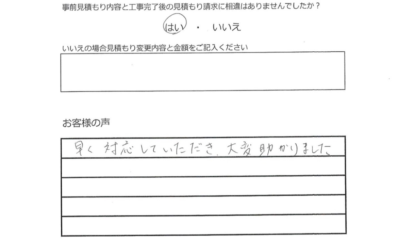 事前見積もり内容と工事完了後の見積もり請求に相違はありませんでしたか？
はい ・ いいえ
いいえの場合見積もり変更内容と金額をご記入ください
お客様の声
早く対応していただき、大変助かりました